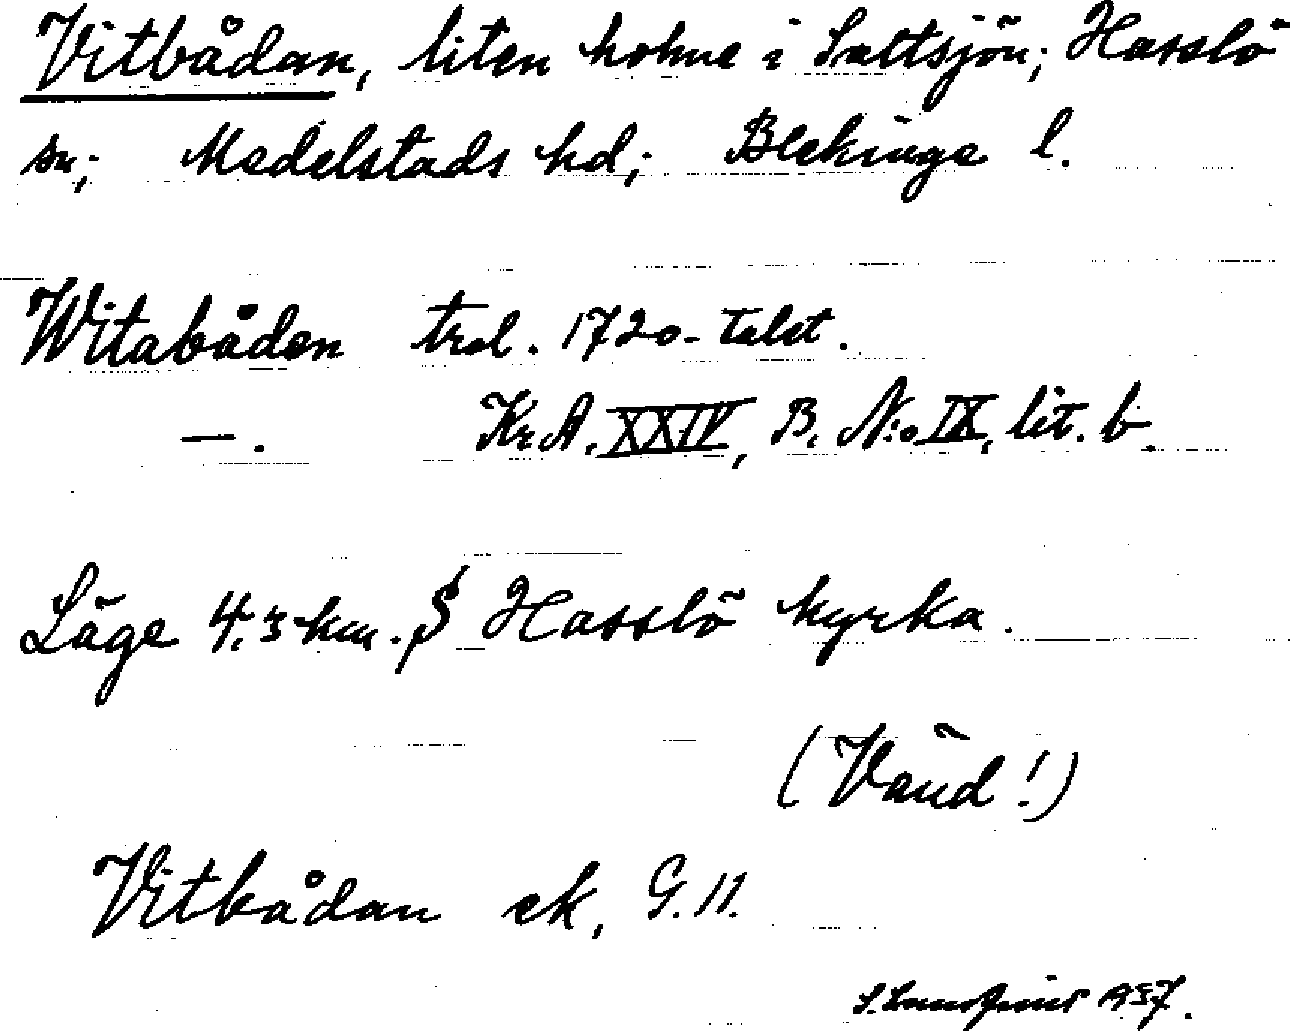 Vitbådan, liten holme i Saltsjön; Hasslö
sn; Medelstads hd; Blekinge l.
Witabåden trol. 1720-talet.
—. Kr.A. XXIV, B. N:o IX, lit. b.
Läge 4.3 km. S Hasslö kyrka.
(Vänd!)
Vitbådan ek, G. 11.
1937.